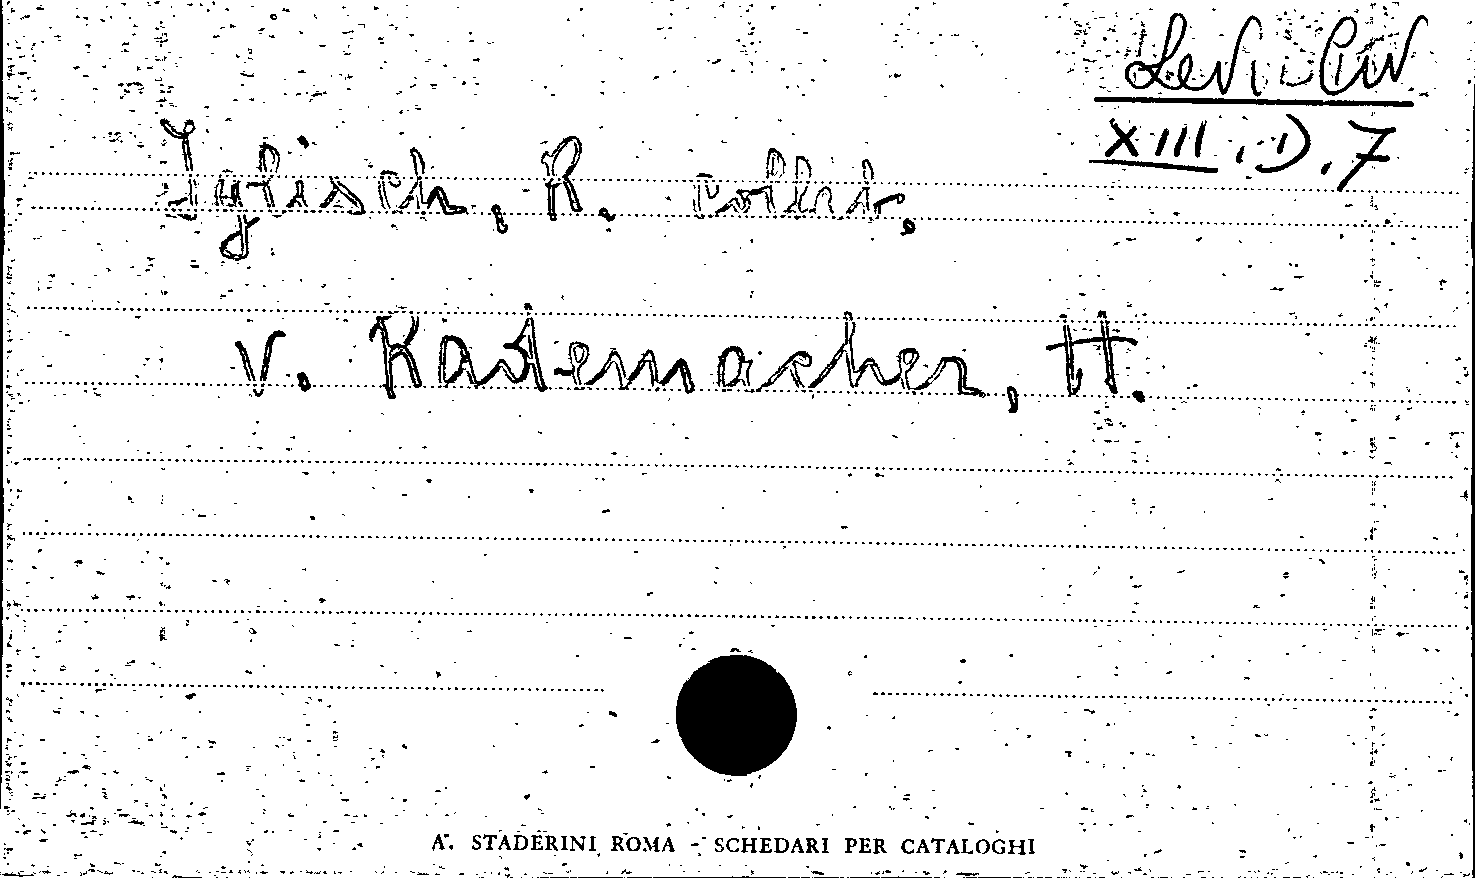 Levi-Civ
XIII.D.7
Iglisch, R. collab.
v. Rademacher, H.
A. STADERINI ROMA - SCHEDARI PER CATALOGHI